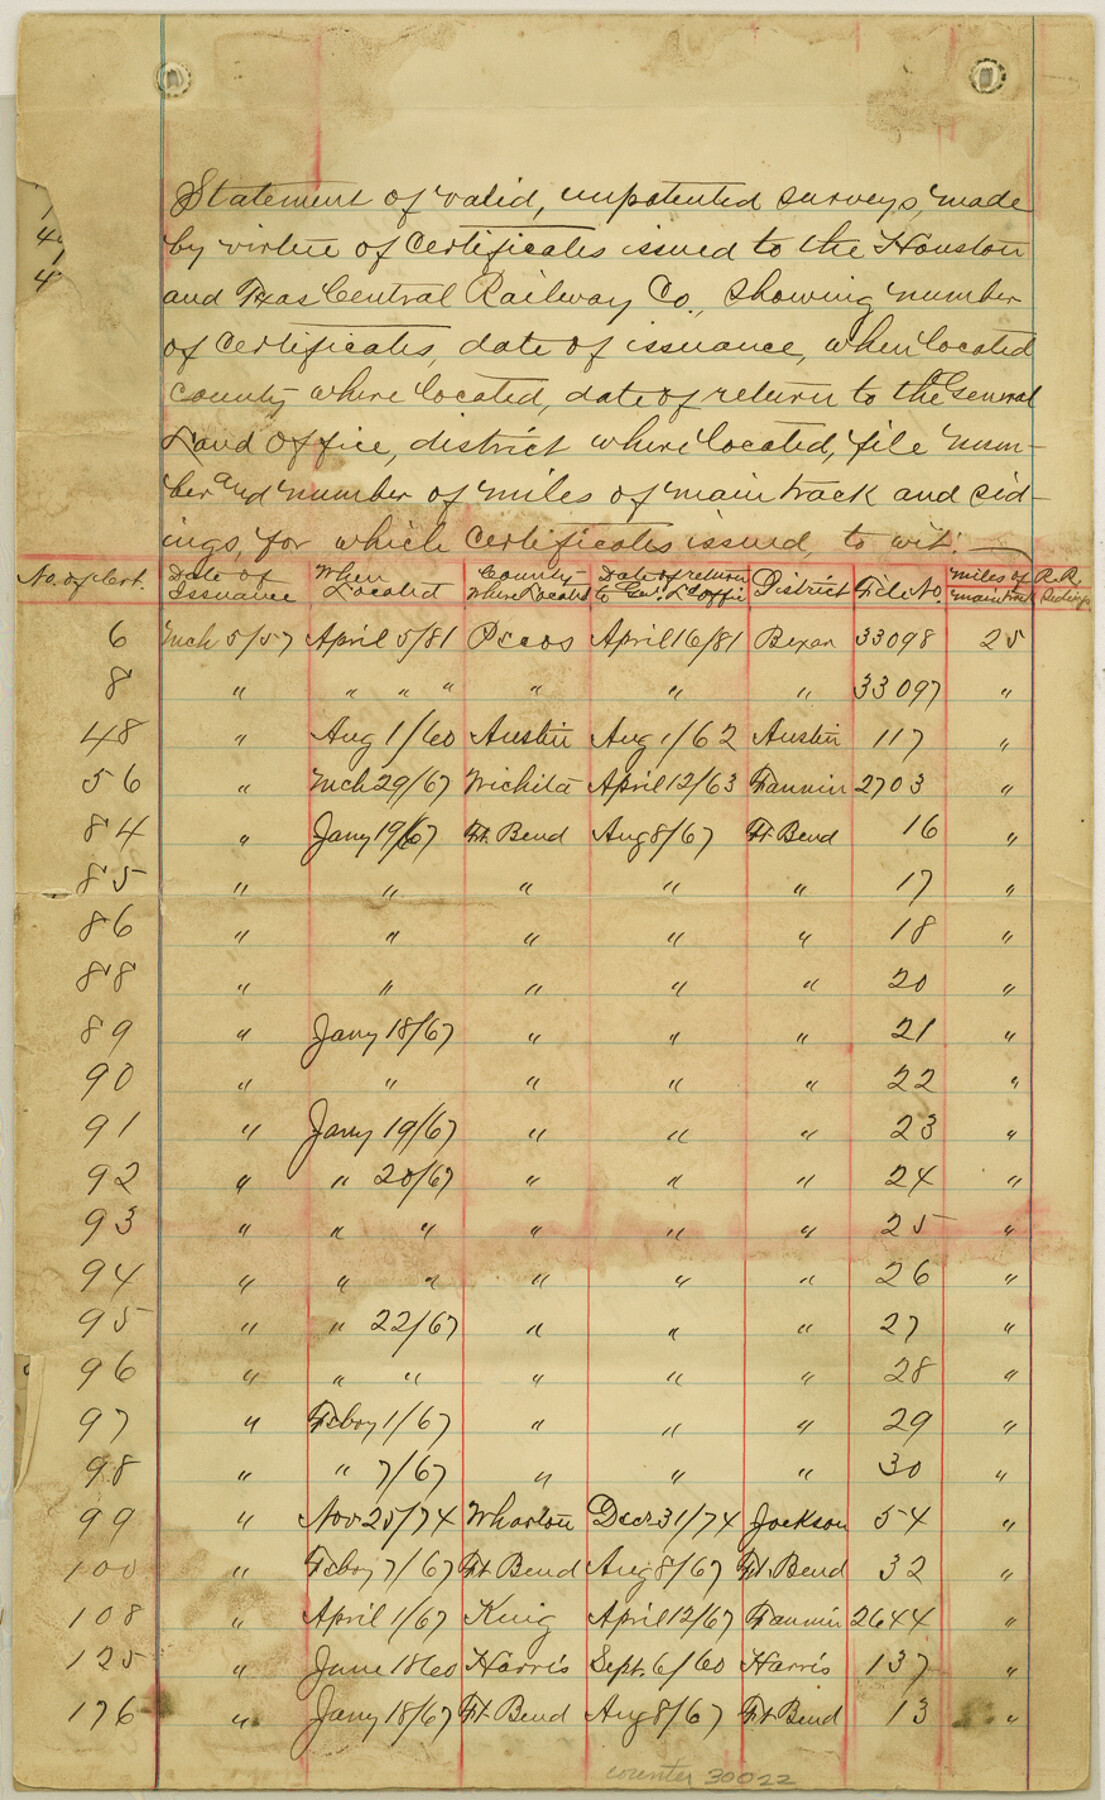 Statement of valid, unpatented surveys, made
by virtue of Certificates issued to the Houston
and Texas Central Railway Co., showing number
of certificates, date of issuance, when located
county where located, date of return to the General
Land Office, district where located, file num-
ber and number of miles of main track and sid-
ings, for which certificates issued, to wit: —
No. of Cert. Date of Issuance When Located County Where Located Date of return to Genl. Ld Offic District File No. Miles of main track R.R. Sidings
6 Mch 5/57 April 5/81 Pecos April 16/81 Bexar 33098 25
8 " " " " " " " 33097 "
48 " Aug 1/60 Austin Aug 1/62 Austin 117 "
56 " Mch 29/67 Wichita April 12/63 Fannin 2703 "
84 " Jany 19/67 Ft. Bend Aug 8/67 Ft. Bend 16 "
85 " " " " " 17 "
86 " " " " " 18 "
88 " " " " " 20 "
89 " Jany 18/67 " " " 21 "
90 " " " " " 22 "
91 " Jany 19/67 " " " 23 "
92 " " 20/67 " " " 24 "
93 " " " " " " 25 "
94 " " " " " " 26 "
95 " " 22/67 " " " 27 "
96 " " " " " " 28 "
97 " Febry 1/67 " " " 29 "
98 " " 7/67 " " " 30 "
99 " Nov 25/74 Wharton Decr 31/74 Jackson 54 "
100 " Febry 7/67 Ft. Bend Aug 8/67 Ft. Bend 32 "
108 " April 1/67 King April 12/67 Fannin 2644 "
125 " June 18 60 Harris Sept. 6/60 Harris 137 "
176 " Jany 18/67 Ft. Bend Aug 8/67 Ft. Bend 13 "
counter 30022